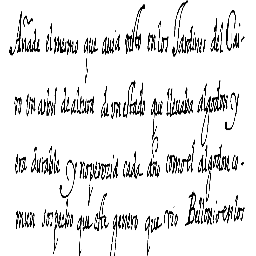 Añade el mesmo que auia visto en los Jardines del Cai-
ro vn arbol de altura de vn estado que lleuaba algodon y
era durable y no perecia cada año como el algodon co-
mun sospecho que este genero que vio Bellonio en los